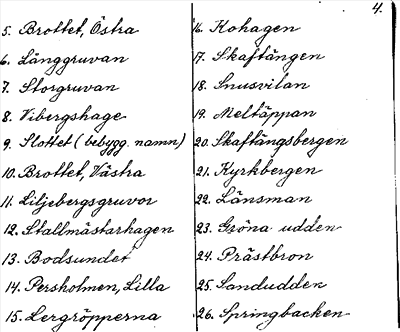 4.
5. Brottet, Östra
6. Långgruvan
7. Storgruvan
8. Vibergshage
9. Slottet (bebygg. namn)
10. Brottet, Västra
11. Liljebergsgruvor
12. Stallmästarhagen
13. Bodsundet
14. Persholmen, Lilla
15. Lergröpperna
16. Kohagen
17. Skaftängen
18. Snusvilan
19. Meltäppan
20. Skaftängsbergen
21. Kyrkbergen
22. Länsman
23. Gröna udden
24. Prästbron
25. Sandudden
26. Springbacken